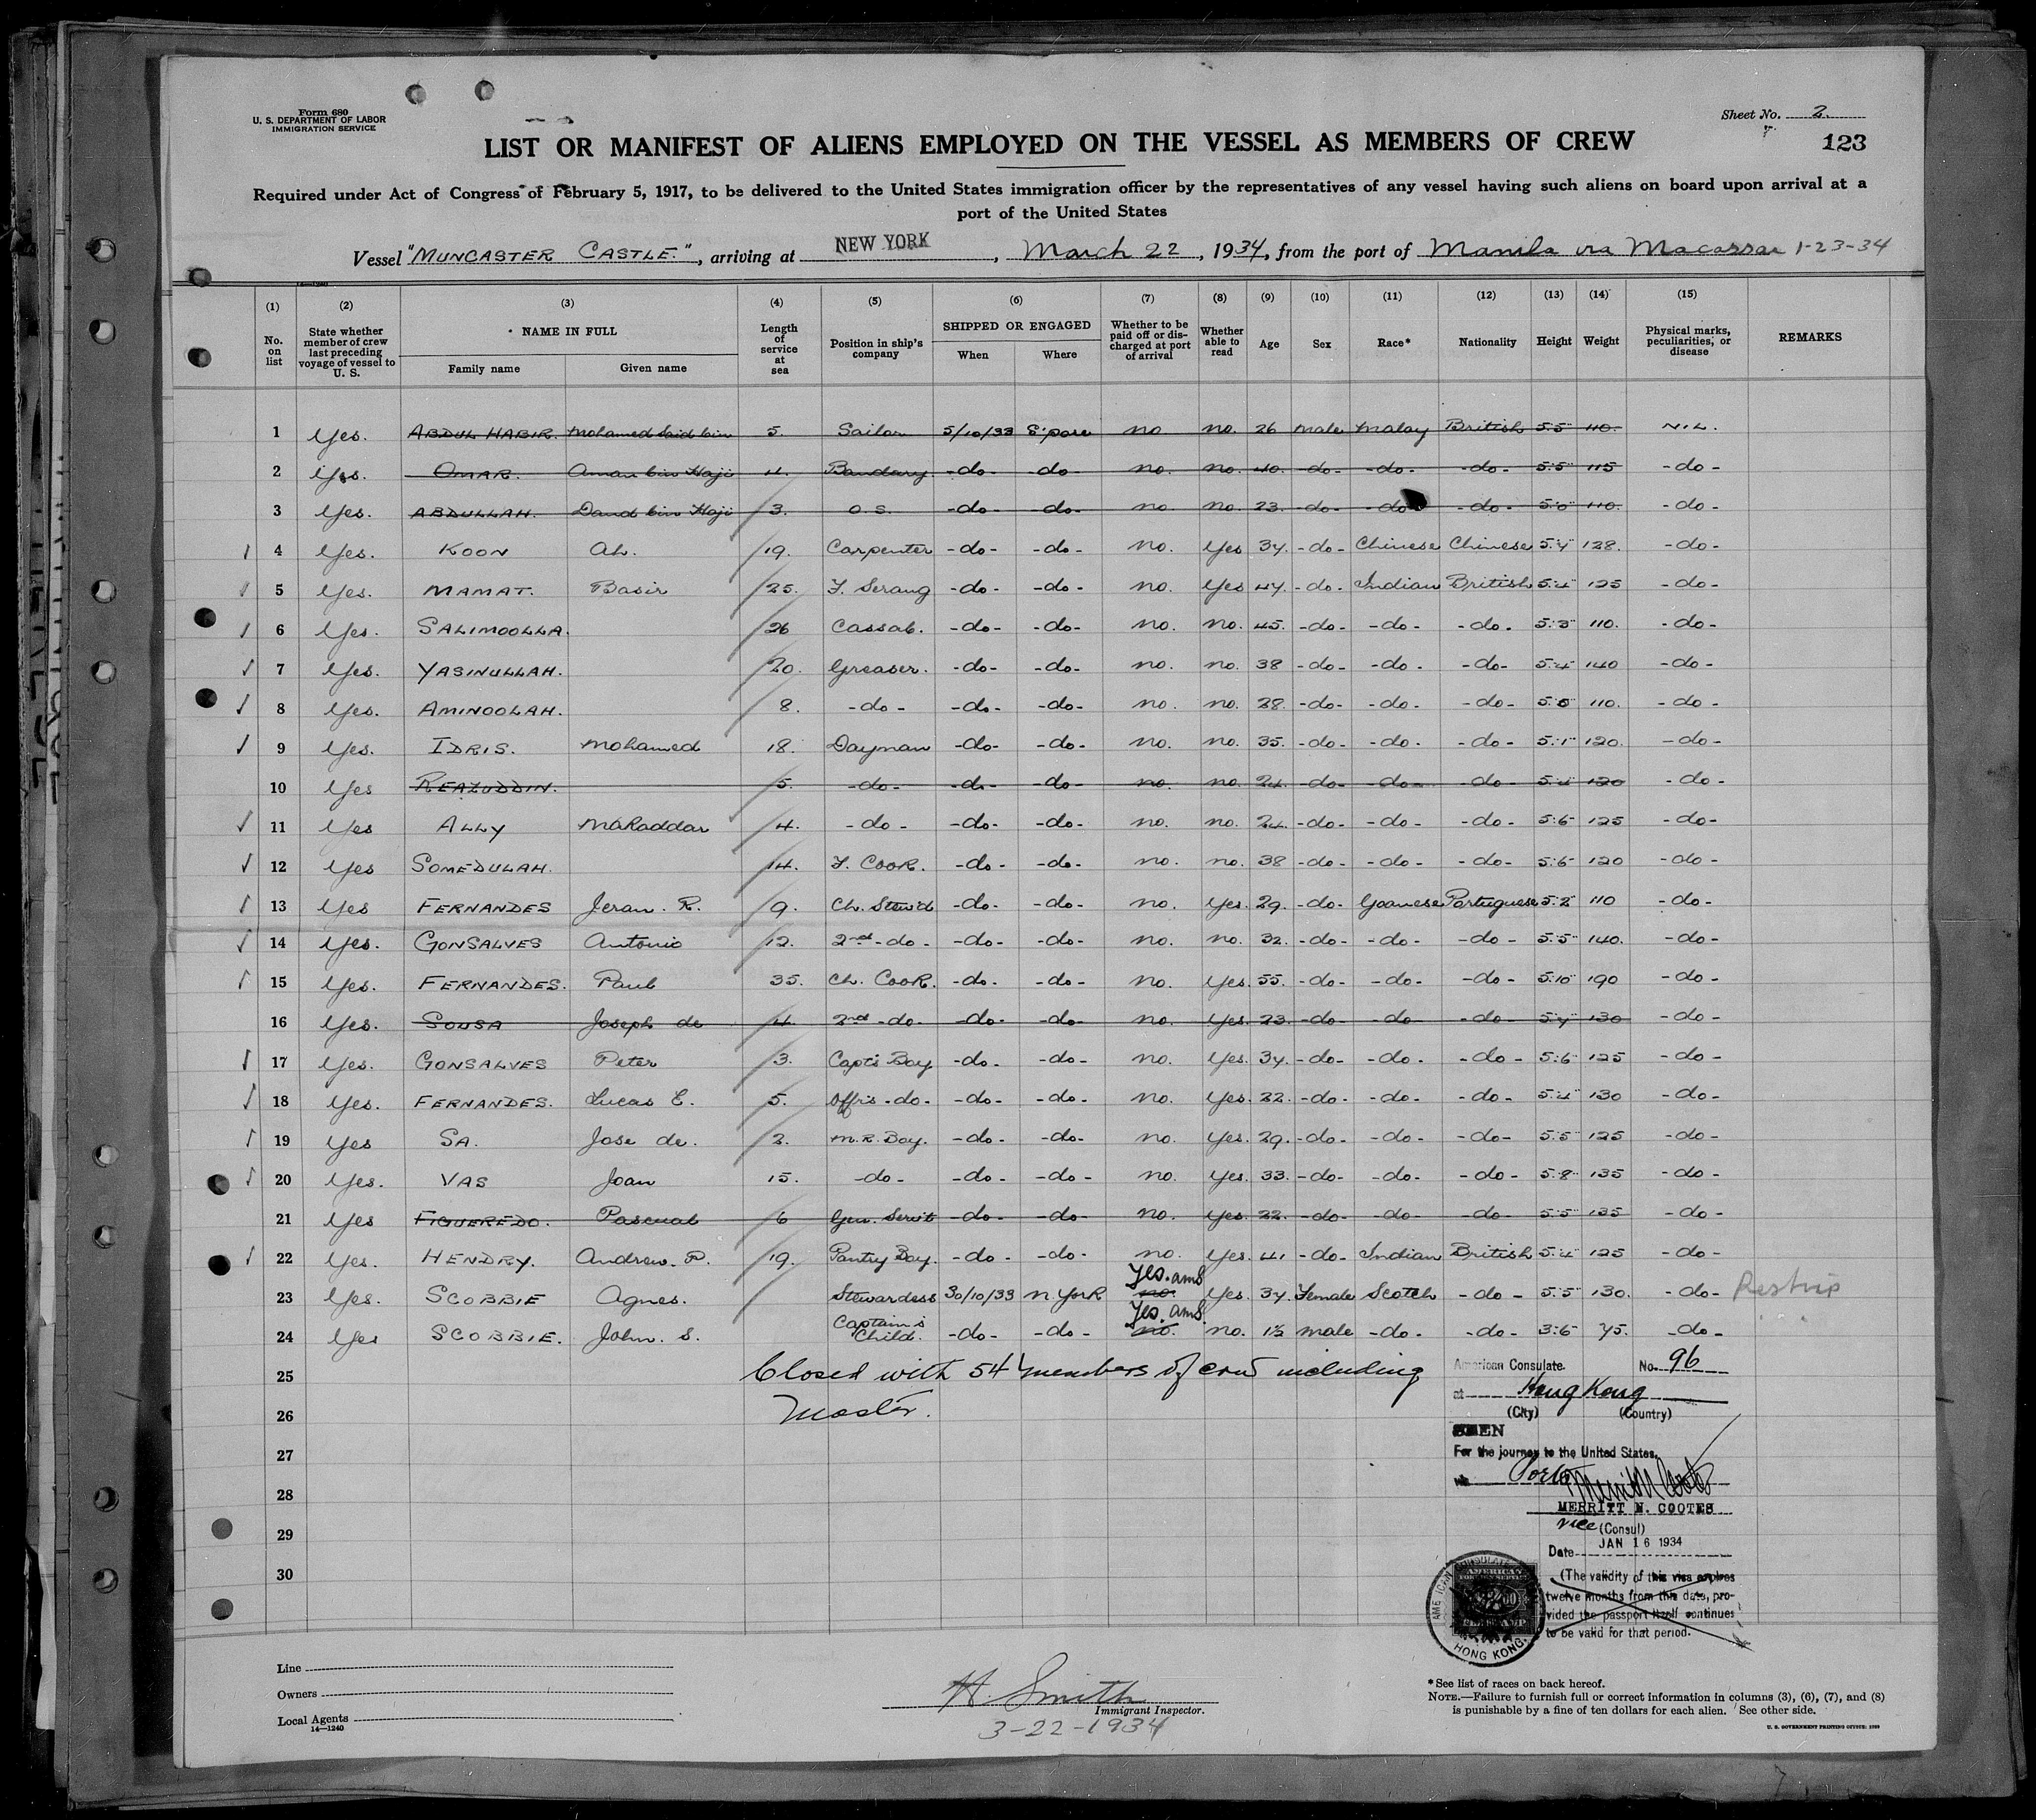 Form 680
U. S. DEPARTMENT OF LABOR
IMMIGRATION SERVICE
Sheet No. 2.
123
LIST OR MANIFEST OF ALIENS EMPLOYED ON THE VESSEL AS MEMBERS OF CREW
Required under Act of Congress of February 5, 1917, to be delivered to the United States immigration officer by the representatives of any vessel having such aliens on board upon arrival at a
port of the United States
Vessel "MUNCASTER CASTLE.", arriving at NEW YORK, March 22, 1934, from the port of Manila via Macassar 1-23-34
(1) (2) (3) (4) (5) (6) (7) (8) (9) (10) (11) (12) (13) (14) (15)
No. on list State whether member of crew last preceding voyage of vessel to U. S. NAME IN FULL Family name Given name Length of service at sea Position in ship's company SHIPPED OR ENGAGED When Where Whether to be paid off or discharged at port of arrival Whether able to read Age Sex Race* Nationality Height Weight Physical marks, peculiarities, or disease REMARKS
1 Yes. ABDUL HABIR. Mohamed Said bin 5. Sailor 5/10/33 S'pore no no. 26 male Malay British 5'5" 110. NIL.
2 Yes. OMAR. Aman bin Haji 4. Bandary -do- -do- no. no. 40. -do- -do- -do- 5'5" 115 -do-
3 Yes. ABDULLAH. Daud bin Haji 3. O.S. -do- -do- no. no. 23. -do- -do- -do- 5'0" 110. -do-
4 Yes. KOON Ah. 19. Carpenter -do- -do- no. Yes 34. -do- Chinese Chinese 5'4" 128. -do-
5 Yes. MAMAT. Basir 25. F. Serang -do- -do- no. Yes 47. -do- Indian British 5'4" 125 -do-
6 Yes. SALIMOOLLA. 26 Cassab. -do- -do- no. no. 45. -do- -do- -do- 5'3" 110. -do-
7 Yes. YASINULLAH. 20. Greaser. -do- -do- no. no. 38 -do- -do- -do- 5'4" 140 -do-
8 Yes. AMINOOLAH. 8. -do- -do- -do- no. no. 28. -do- -do- -do- 110. -do-
9 Yes. IDRIS. Mohamed 18. Dayman -do- -do- no. no. 35. -do- -do- -do- 5'1" 120. -do-
10 Yes REAZUDDIN. 5. -do- -do- -do- no. no. 24. -do- -do- -do- 5'4" 120 -do-
11 Yes ALLY Makaddar 4. -do- -do- -do- no. no. 24. -do- -do- -do- 5'6" 125 -do-
12 Yes SOMEDULAH. 14. F. Cook. -do- -do- no. no. 38 -do- -do- -do- 5'6" 120 -do-
13 Yes FERNANDES Jeran. R. 9. Ch. Stew'd -do- -do- no. Yes. 29. -do- Goanese Portuguese 5'2" 110 -do-
14 Yes. GONSALVES Antonio 12. 2nd -do- -do- -do- no. no. 32. -do- -do- -do- 5'5" 140. -do-
15 Yes. FERNANDES. Paul 35. Ch. Cook. -do- -do- no. Yes. 55. -do- -do- -do- 5'10" 190 -do-
16 Yes. SOUSA Joseph de 4. 2nd -do- -do- -do- no. Yes. 23. -do- -do- -do- 5'7" 130 -do-
17 Yes. GONSALVES Peter 3. Capt's Boy -do- -do- no. Yes. 34. -do- -do- -do- 5'6" 125 -do-
18 Yes. FERNANDES. Lucas E. 5. Offr's -do- -do- -do- no. Yes. 22. -do- -do- -do- 5'4" 130 -do-
19 Yes SA. Jose de. 2. M.R. Boy. -do- -do- no. Yes. 29. -do- -do- -do- 5'5" 125 -do-
20 Yes. VAS Joan 15. -do- -do- -do- no. Yes. 33. -do- -do- -do- 5'8" 135 -do-
21 Yes FIGUEREDO. Pascual 6 Gen. Serv't -do- -do- no. Yes. 22. -do- -do- -do- 5'5" 135 -do-
22 Yes. HENDRY. Andrew. P. 19. Pantry Boy. -do- -do- no. Yes. 41. -do- Indian British 5'4" 125 -do-
23 Yes. SCOBBIE Agnes. Stewardess 30/10/33 N. York Yes. ams no. Yes. 34. Female Scotch -do- 5'5" 130. -do-
24 Yes SCOBBIE. John. S. Captain's Child. -do- -do- Yes. ams no. no. 1½ male -do- -do- 3'6" 45. -do-
25 Closed with 54 members of crew including
26 Master.
27
28
29
30
American Consulate. No. 96
at Hong Kong
(City) (Country)
SEEN
For the journey to the United States.
MERRITT N. COOTES
Vice (Consul)
Date JAN 16 1934
(The validity of this visa expires
twelve months from this date, provided
the passport itself continues
to be valid for that period.
HONG KONG.
Line
Owners
Local Agents
14—1240
H. Smith
Immigrant Inspector.
3-22-1934
*See list of races on back hereof.
NOTE.—Failure to furnish full or correct information in columns (3), (6), (7), and (8)
is punishable by a fine of ten dollars for each alien. See other side.
U. S. GOVERNMENT PRINTING OFFICE: 1929